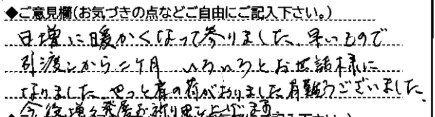 ◆ご意見欄(お気づきの点などご自由にご記入下さい。)
日増に暖かくなって参りました、早いもので
引渡しから二ヶ月 いろいろとお世話様に
なりました。やっと肩の荷がおりました有難うございました。
今後増々発展お祈り申し上げます